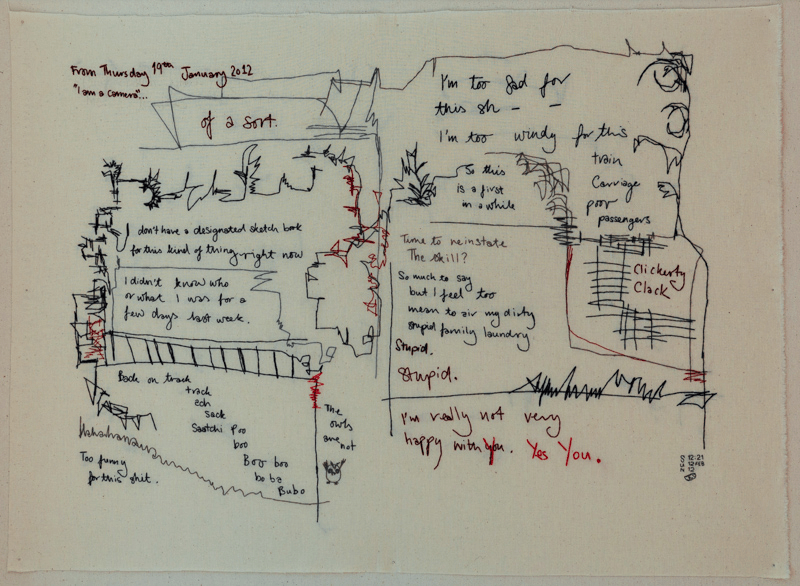 From Thursday 19th January 2012
"I am a camera"...
of a sort.
I don't have a designated sketch book
for this kind of thing right now
I didn't know who
or what I was for a
few days last week.
Back on track
track
ach
sack
Saatchi Poo
boo
Boo boo
bo ba
Bubo
Hahahahaaaa
Too funny
for this shit.
The
owls
are
not
I'm too sad for
this sh - -
I'm too windy for this
train
Carriage
poor
passengers
So this
is a first
in a while
Time to reinstate
The skill?
So much to say
but I feel too
mean to air my dirty
stupid family laundry
Stupid.
Stupid.
Clickerty
Clack
I'm really not very
happy with You. Yes You.
12:21
12 FEB
12